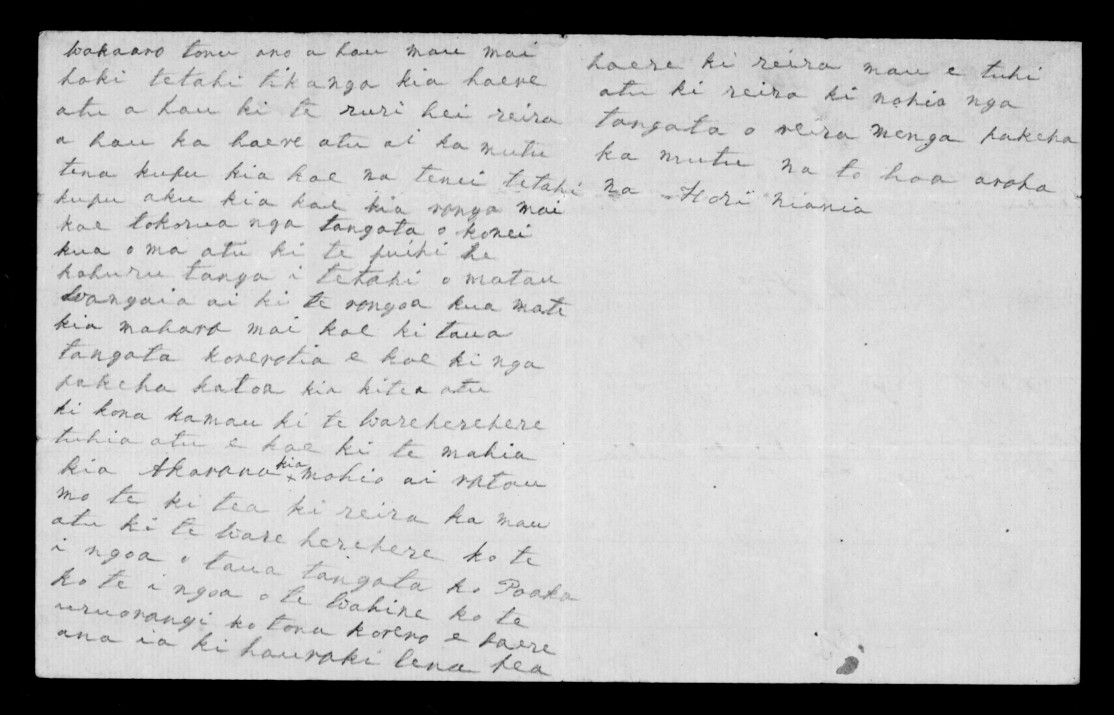 wakaaro tonu ano a hau mau mai
hoki tetahi tikanga kia haere
atu a hau ki te ruri hei reira
a hau ka haere atu ai ka mutu
tena kupu kia koe na tenei tetahi
kupu aku kia koe kia rongo mai
koe tokorua nga tangata o konei
kua o ma atu ki te puihi he
kohuru tanga i tetahi o matau
wangaia ai ki te rongoa kua mate
kia mahara mai koe ki taua
tangata korerotia e koe ki nga
pakeha katoa kia kitea atu
ki kona kamau ki te wareherehere
tuhia atu e koe ki te mahia
kia Akarana kia mohio ai ratou
mo te ki tea ki reira ka mau
atu ki te ware herehere ko te
i ngoa o taua tangata ko Paaka
ko te i ngoa o te wahine ko te
uruorangi ko tona korero e haere
ana ia ki hauraki tena hea
haere ki reira mau e tuhi
atu ki reira ki mohio nga
tangata o reira menga pakeha
ka mutu na to hoa aroha
na Hori Niania